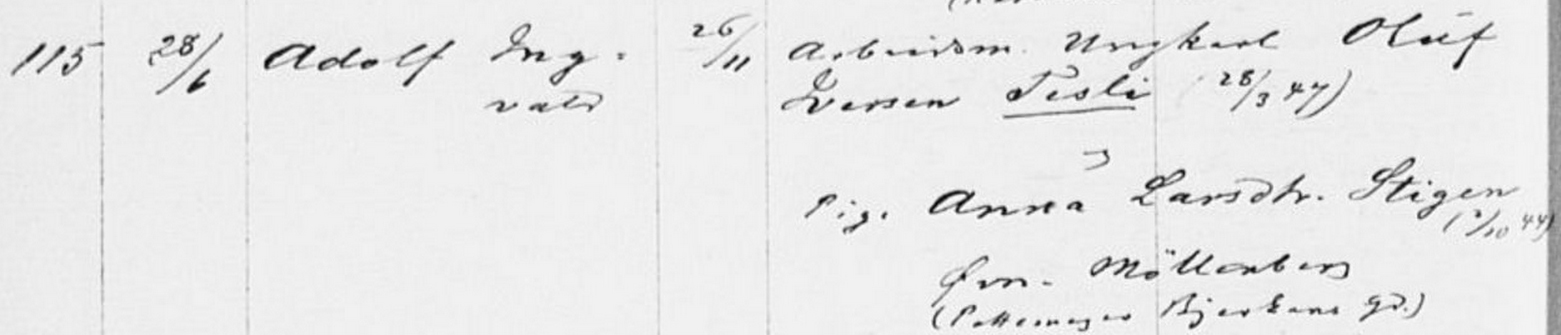 115 28/6 Adolf Ing- 26/11 Arbeidsm. Ungkarl Oluf
vald Iversen Tesli (28/3 47)
Pig. Anna Larsdtr. Stigen
(2/10 44)
Øvr. Möllenberg
(Pottemager Bjerkans Gd.)